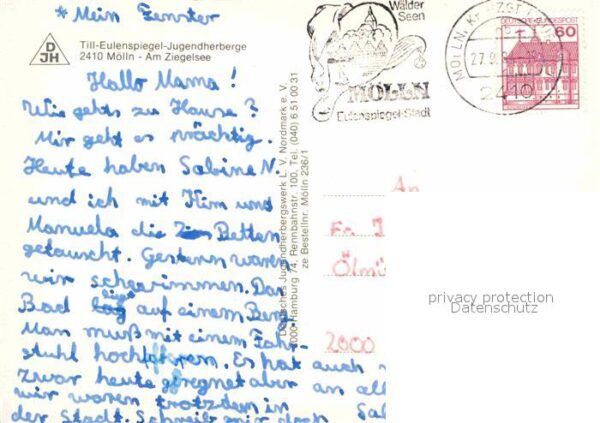 * Mein Fenster
DJH
Till-Eulenspiegel-Jugendherberge
2410 Mölln - Am Ziegelsee
Hallo Mama!
Wie gehts zu Hause?
Mir geht es prächtig.
Heute haben Sabine N.
und ich mit Kim und
Manuela die Betten
getauscht. Gestern waren
wir schwimmen. Das
Bad liegt auf einem Berg
Man muß mit einem Fahr-
stuhl hoch fahren. Es hat auch
zwar heute geregnet aber an all
wir waren trotzdem in Sab
der Stadt. Schreib mir doch
Deutsches Jugendherbergswerk L. V. Nordmark e. V.
2000 Hamburg 74, Rennbahnstr. 100, Tel. (040) 6 51 00 31
ze Bestellnr. Mölln 236/1
Wälder
Seen
MÖLLN
Eulenspiegel-Stadt
MÖLLN, KR HZGT
27.9.
2410
DEUTSCHE BUNDESPOST
60
An
Fr.
Ölmü
2000
privacy protection
Datenschutz